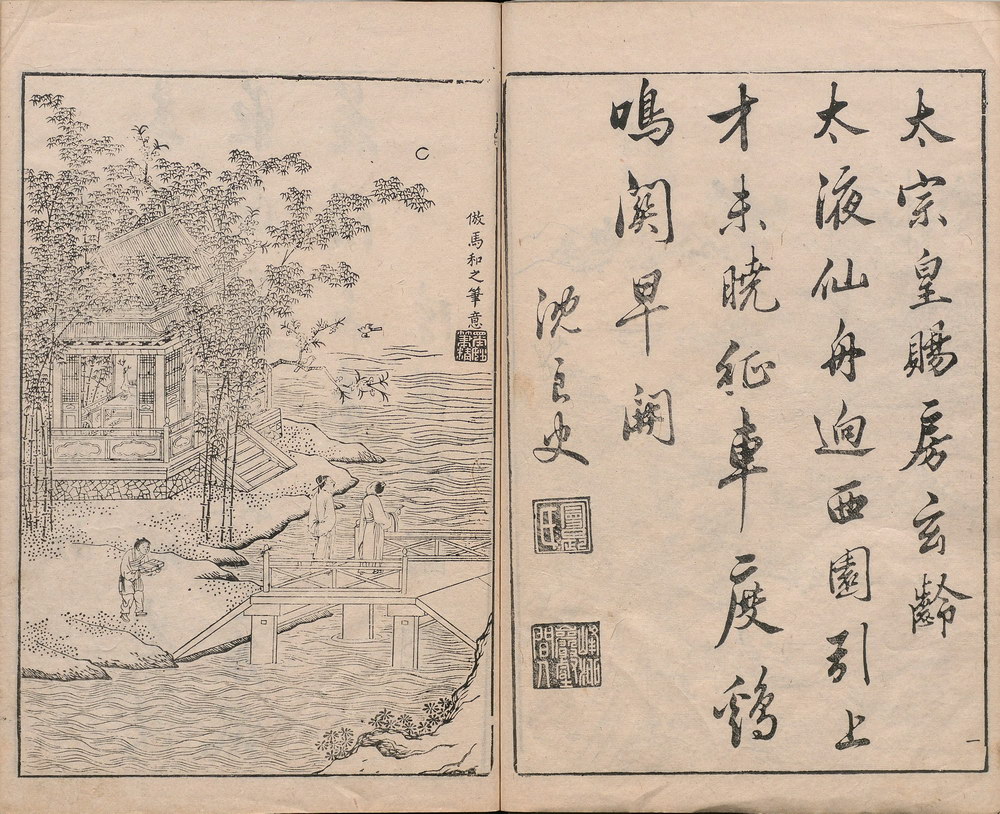 太宗皇賜房玄齡
太液仙舟迥西園引上
才未曉征車度鷄
鳴關早開
沈良史
倣馬和之筆意